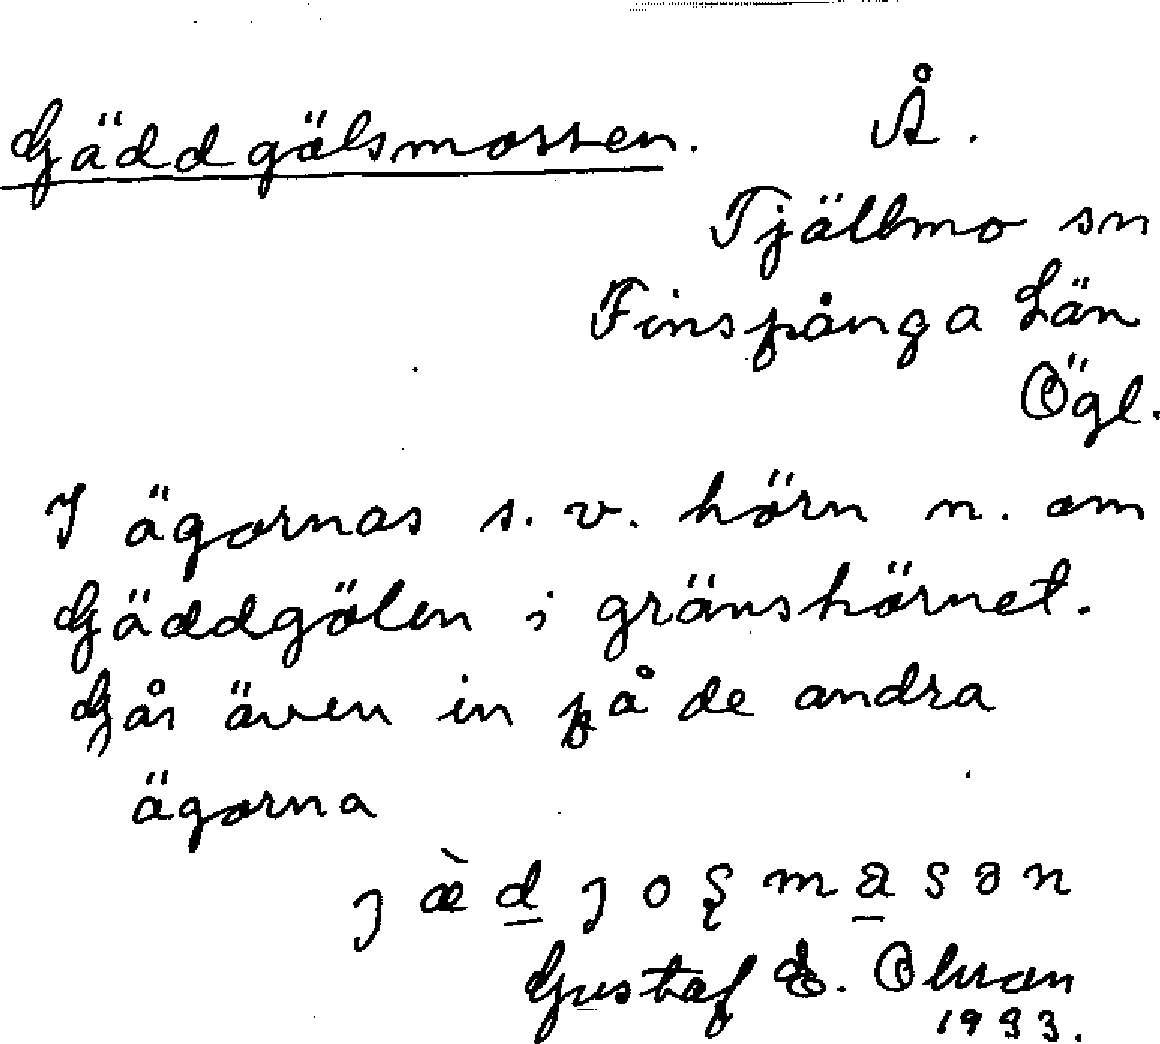 Gäddgölsmossen. Å.
Tjällmo sn
Finspånga Län
Ögl.
I ägornas s. v. hörn n. om
Gäddgölen i gränshörnet.
Går även in på de andra
ägorna
Gustaf E. Olsson
1933.